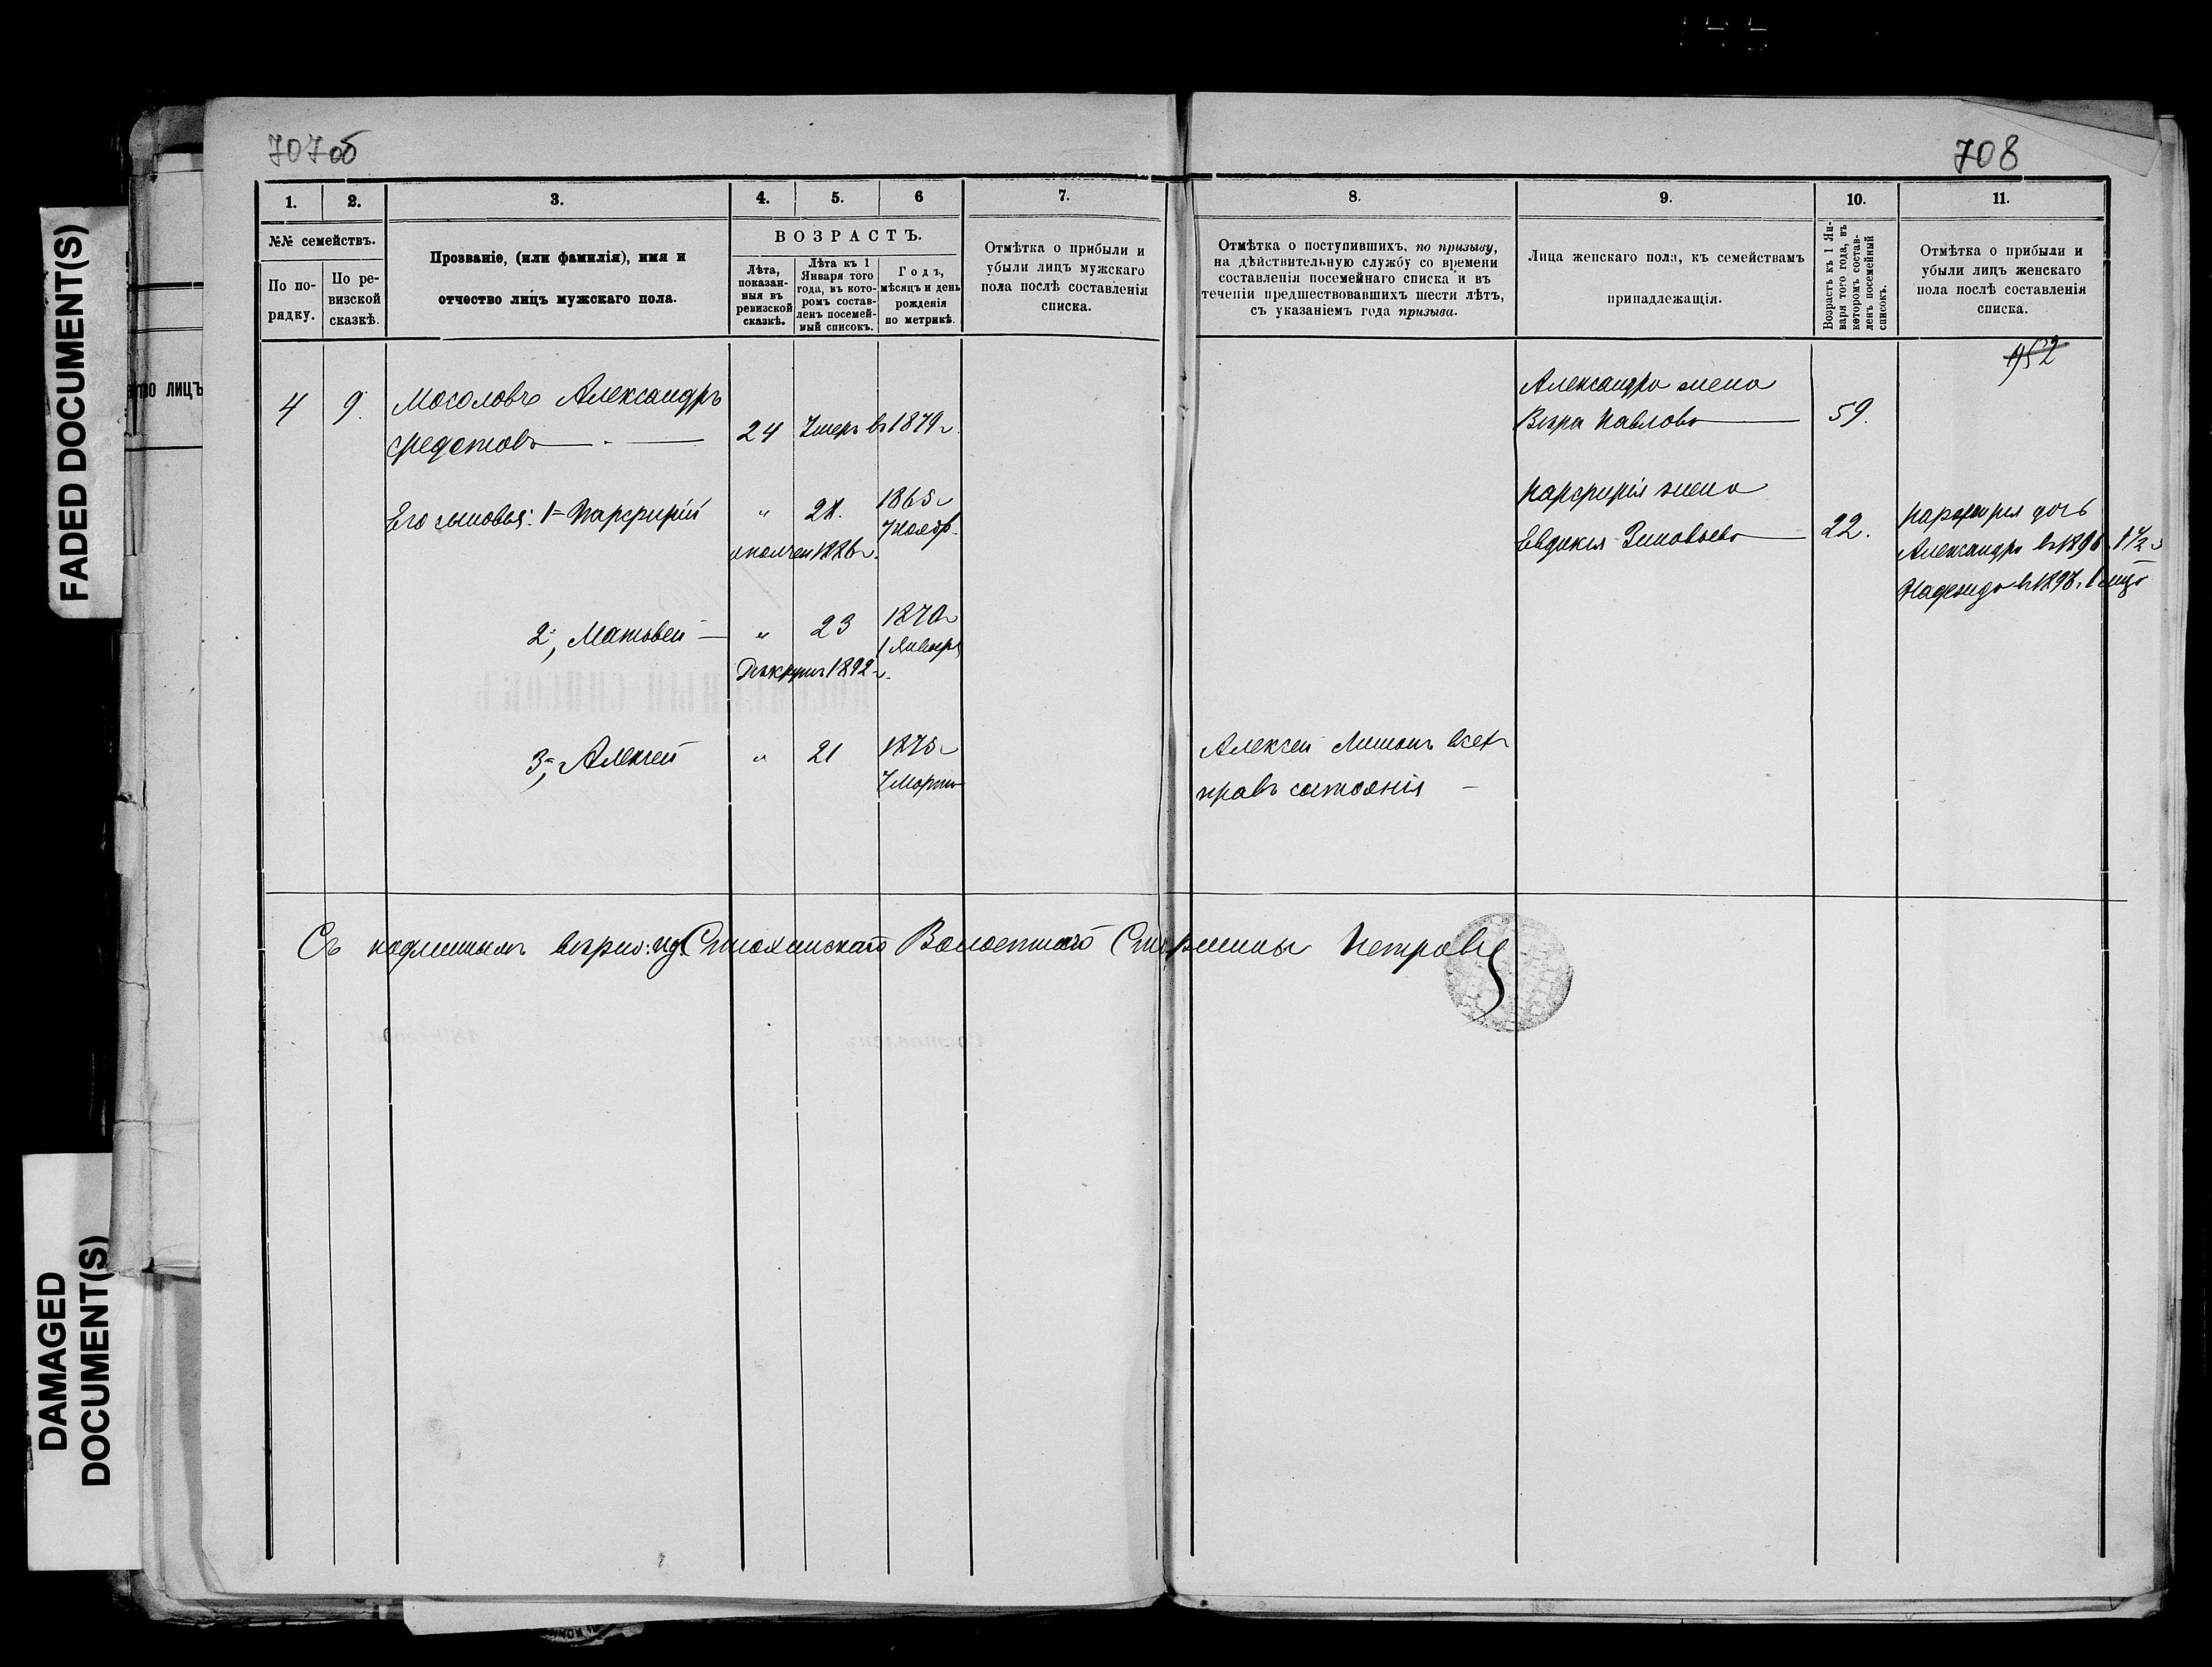 707об
708
1.
2.
3.
4.
5.
6
7.
8.
9.
10.
11.
№№ семействъ.
По по-
рядку.
По ре-
визской
сказкѣ.
Прозваніе, (или фамилія), имя и
отчество лицъ мужскаго пола.
ВОЗРАСТЪ.
Лѣта,
показан-
ныя въ
ревизской
сказкѣ.
Лѣта къ 1
Января того
года, въ кото-
ромъ состав-
ленъ посемей-
ный списокъ.
Годъ,
мѣсяцъ и день
рожденія
по метрикѣ.
Отмѣтка о прибыли и
убыли лицъ мужскаго
пола послѣ составленія
списка.
Отмѣтка о поступившихъ, по призыву,
на дѣйствительную службу со времени
составленія посемейнаго списка и въ
теченіи предшествовавшихъ шести лѣтъ,
съ указаніемъ года призыва.
Лица женскаго пола, къ семействамъ
принадлежащія.
Возрастъ къ 1 Ян-
варя того года, въ
которомъ состав-
ленъ посемейный
списокъ.
Отмѣтка о прибыли и
убыли лицъ женскаго
пола послѣ составленія
списка.
4
9.
Мосоловъ Александръ
Федотовъ
24
Умеръ въ 1879 г.
Александра жена
Вѣра Павлова
59.
Его сыновья: 1й Парфирій
"
28.
1865 г
7 Нояб.
ополчен 1886 г.
Парфирія жена
Евдокія Зиновьева
22.
Парфирія дочь
Александра въ 1896 г. 1/2 г
Надежда въ 1897 г. 1 мцъ
2й, Матвей
"
23
1870 г
1 Январь
Рекрутъ 1892 г.
3й, Алексей
"
21
1875 г
7 Марта
Алексей Лишонъ всехъ
правъ состоянія
Съ подлиннымъ вѣрно: Волостнаго Старшины Петровъ
ство лицъ
FADED DOCUMENT(S)
DAMAGED
DOCUMENT(S)